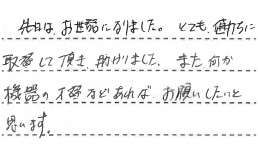 先日は、お世話になりました。とても、直ちに
取替して頂き、助かりました。また、何か
機器の不答などあれば、お願いしたいと
思います。